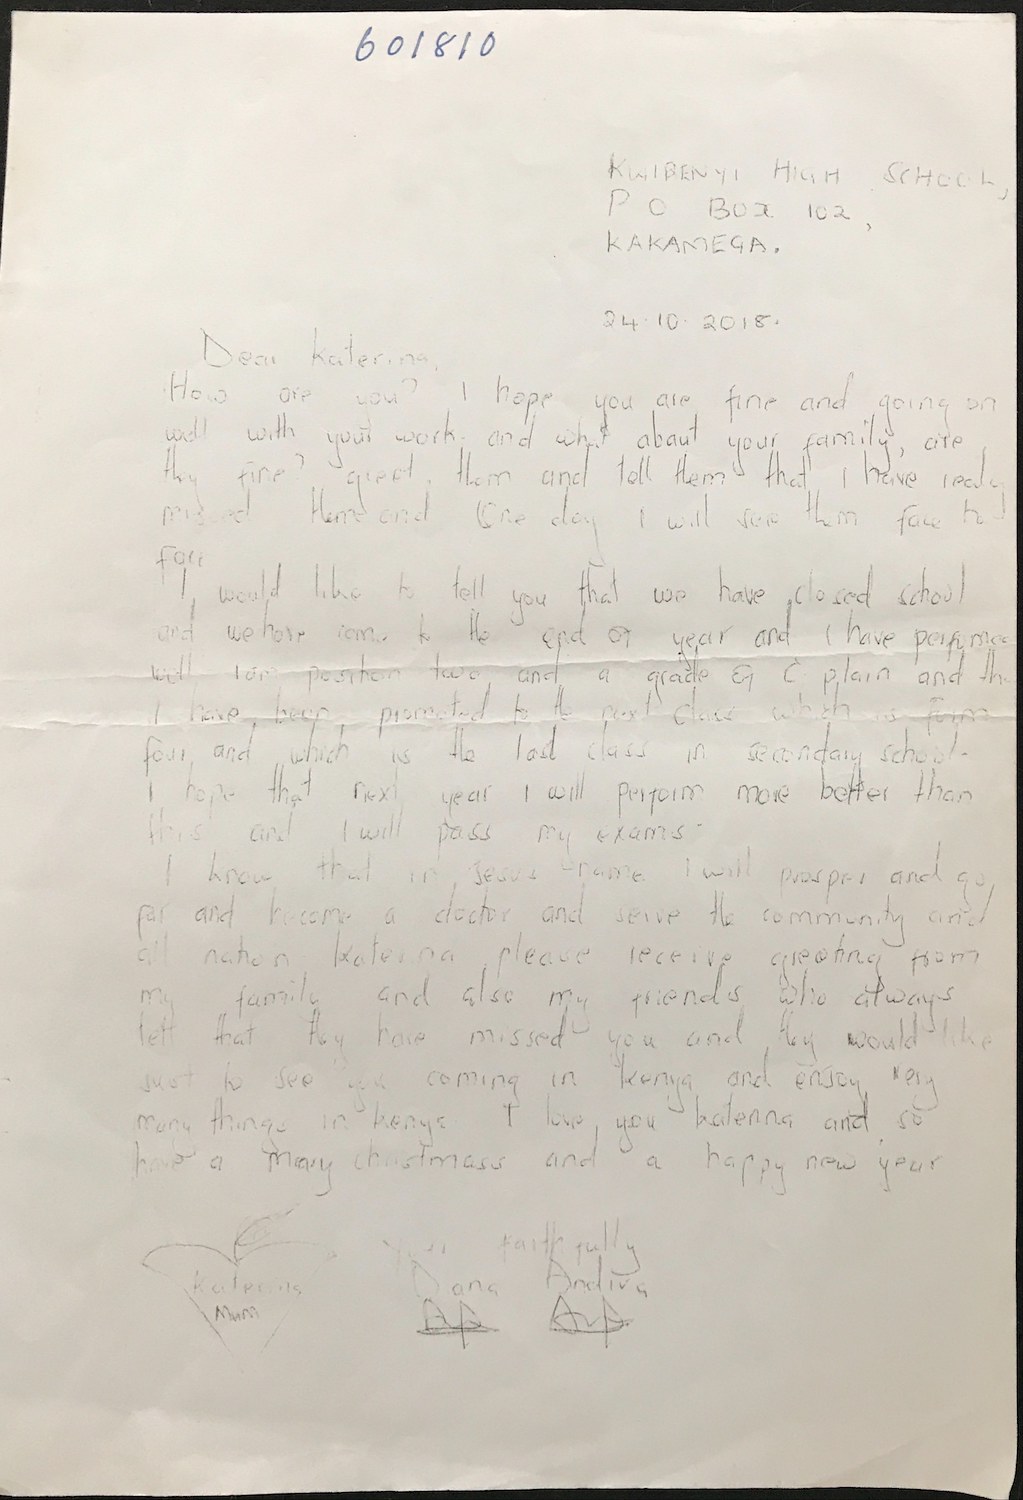 601810
KWIBENYI HIGH SCHOOL,
P O BOX 102,
KAKAMEGA.
24.10.2018.
Dear Katerina,
How are you? I hope you are fine and going on
well with your work. and what about your family, are
they fine? greet them and tell them that I have really
missed them and One day I will see them face to
face
I would like to tell you that we have closed school
and we have come to the end of year and I have
well I am position two and a grade of C plain and
I have been promoted to the next class which is form
four and which is the last class in secondary school.
I hope that next year I will perform more better than
this and I will pass my exams.
I know that in Jesus name I will prosper and go
far and become a doctor and serve the community and
all nation Katerina please receive greeting from
my family and also my friends who always
tell that they have missed you and they would like
just to see you coming in Kenya and enjoy very
many things in Kenya I love you Katerina and so
have a Marry christmass and a happy new year
Your Faithfully
Dana Andiva
Katerina
Mum